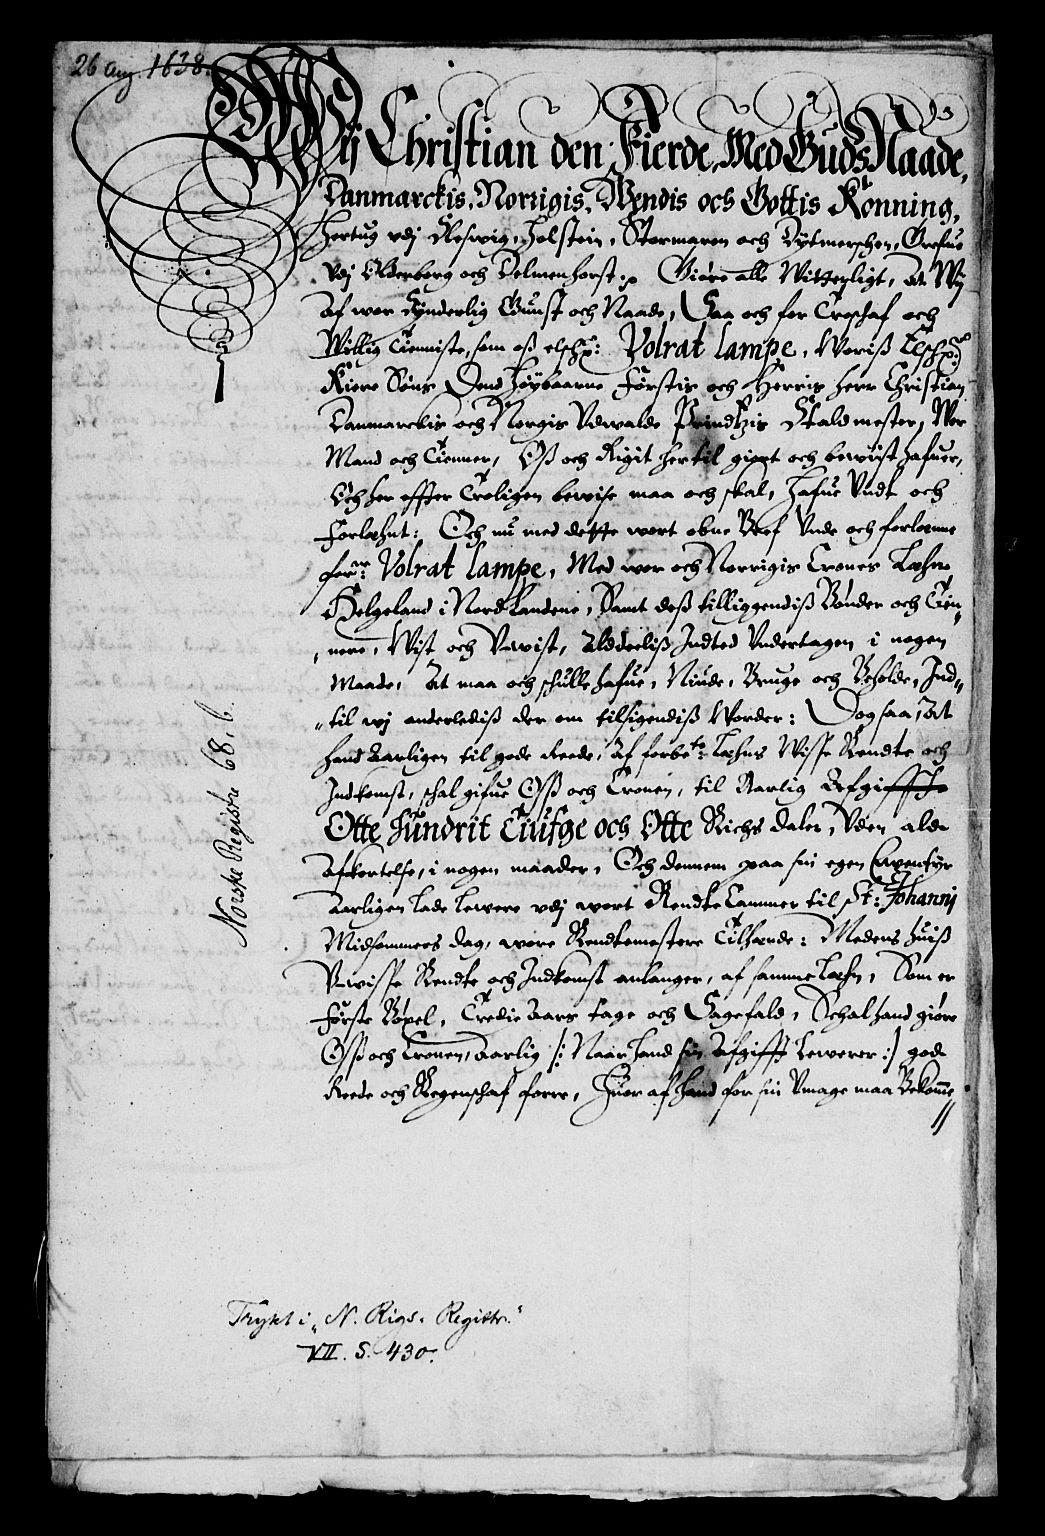 26 Aug. 1638.
Wij Christian den Fierde, Med Guds Naade,
Danmarckis, Norrigis, Wendis och Gottis Konning,
Hertug vdj Slesuig, Holstein, Stormaren och Dytmerschen, Grefue
vdj Oldenborg och Delmenhorst: Giøre alle Witterligt, At Wij
Af wor Synderlig Gunst och Naade, Saa och for Troschaf och
Willig Tienniste, som oß elschl: Volrat Lampe, Woriß Elschl:
Kiere Søns Dend Høybaarne Førstis och Herris Herr Christian
Danmarckis och Norgis Vdwalde Prindtzis Staldmester, Wor
Mand och Tienner, Oß och Rigit hertil giort och bewist hafuer,
Och her effter Troligen bewise maa och skal, Hafue Vndt och
Forlæhnt: Och nu med dette wort obne Bref Vnde och forlænne
forne: Volrat Lampe, Med wor och Norrigis Crones Læhn
Helgeland i Nordlandene, Samt deß tilliggendiß Bønder och Tien„
„nere, Wist och Vwist, Aldeeliß Indted Vndertagen i nogen
Maade, At maa och schulle hafue, Niude, Bruge och Beholde, Ind„
„til wj anderlediß der om tilsigendiß Worder: Dog saa, At
hand Aarligen til gode Reede, Af forbete: Læhns Wisse Rendte och
Indkomst, schal gifue Oß och Cronen, til Aarlig Afgifft
Otte Hundrit Tiufge och Otte Richs daler, Vden ald
Afkortelse, i nogen maader, Och dennem paa sin egen Eventyr
Aarligen lade lewere vdj wort Rendte Cammer til St: Johannj
Midsommers dag, wore Rendtemestere Tilhænde: Medens huiß
Vwisse Rendte och Indkomst anlanger, af samme Læhn, Som er
Første Bøxel, Tredie Aars tage och Sagefald, Schal hand giøre
Oß och Cronen, Aarlig /: Naar hand sin Afgifft Lewerer :/ gode
Reede och Regenschaf forre, Huor af hand for sin Vmage maa Bekomme
//
Norske Registre 68, b.
Trykt i „N. Rigs. Registr."
VII. S. 430.